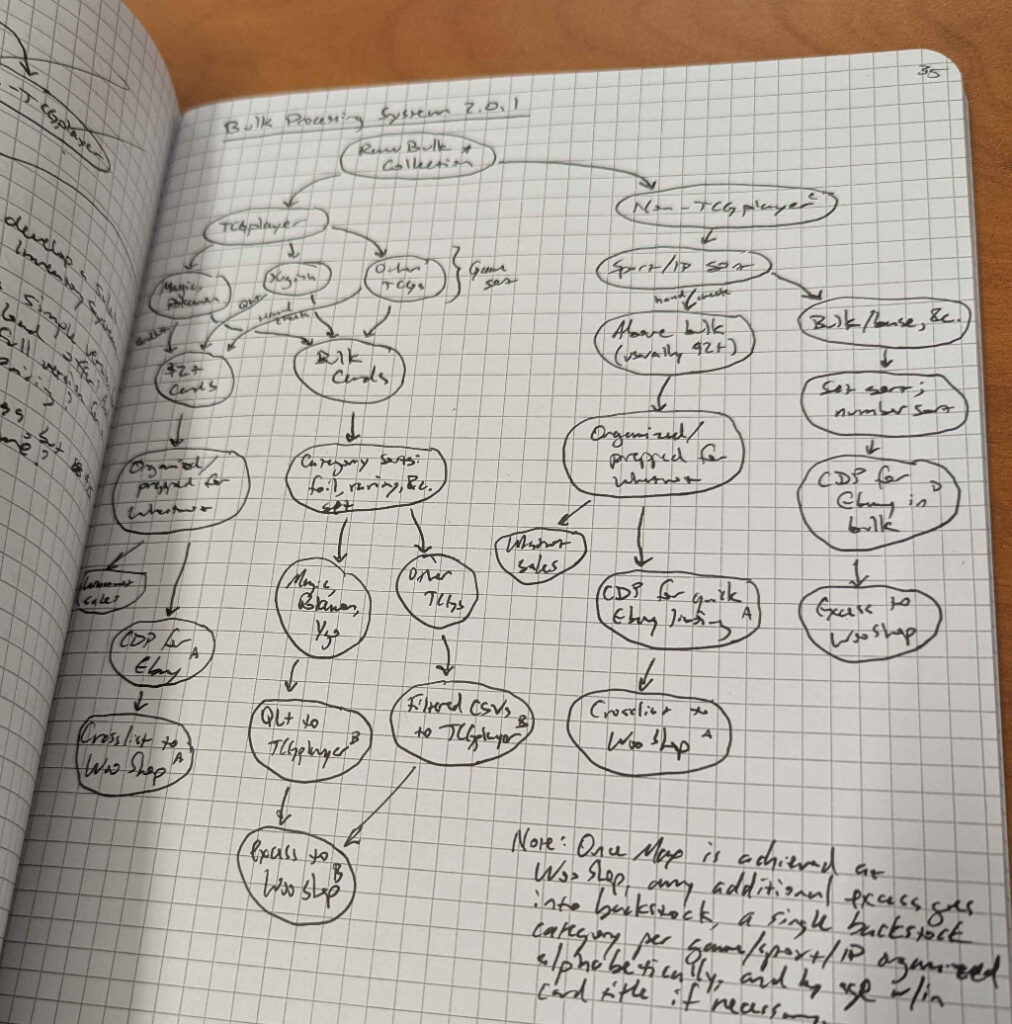 -TCGplayer
develop a
inventory
simple
load
full version
but
35
Bulk Processing System 2.0.1
Raw Bulk *
Collection
TCGplayer
Non-TCGplayer C
Magic,
Pokemon
Yugioh
Other
TCGs
Game
sort
Sport/IP sort
QLt
hand
check
hand check
$2+
Cards
Bulk
Cards
Above bulk
(usually $2+)
Bulk/base, &c.
Set sort;
number sort
Organized/
prepped for
Whatnot
Category sorts:
foil, rarity, &c.
set
Organized/
prepped for
Whatnot
CDP for
Ebay in D
bulk
Whatnot
sales
Magic,
Pokemon,
Ygo
Other
TCGs
Whatnot
sales
CDP for quick
Ebay listing A
Excess to
Woo Shop
CDP for
Ebay A
Crosslist to
Woo Shop A
QLt to
TCGplayer B
Filtered CSVs
to TCGplayer B
Crosslist to
Woo Shop A
Excess to
Woo Shop B
Note: Once Map is achieved at
Woo Shop, any additional excess goes
into backstock, a single backstock
category per game/sport/IP organized
alphabetically, and by set w/in
card title if necessary.